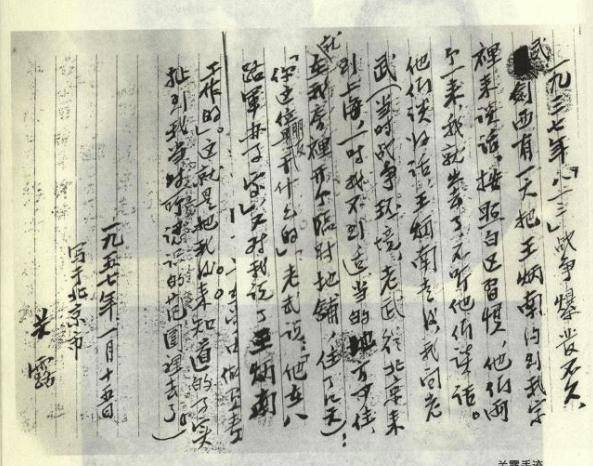 一九三七年「八一三」战争爆发不久,
武剑西有一天把王炳南约到我家
裡来谈话。按照白区习惯,他们两
个一来,我就出去了不听他们谈话。
他们谈好话,王炳南走后,我问老
武(当时战争环境,老武从北京来
到上海,一时找不到适当的地方住,
就在我房裡开个临时地铺,住了几天):
「你这位朋友干什么的」老武说:「他在八
路军办事处」又对我说了王炳南
工作的。」这就是把我从来知道的事实
扯到我当时所谈话的范围裡去了。
一九五七年一月十五日
写于北京市
关露
关露手迹